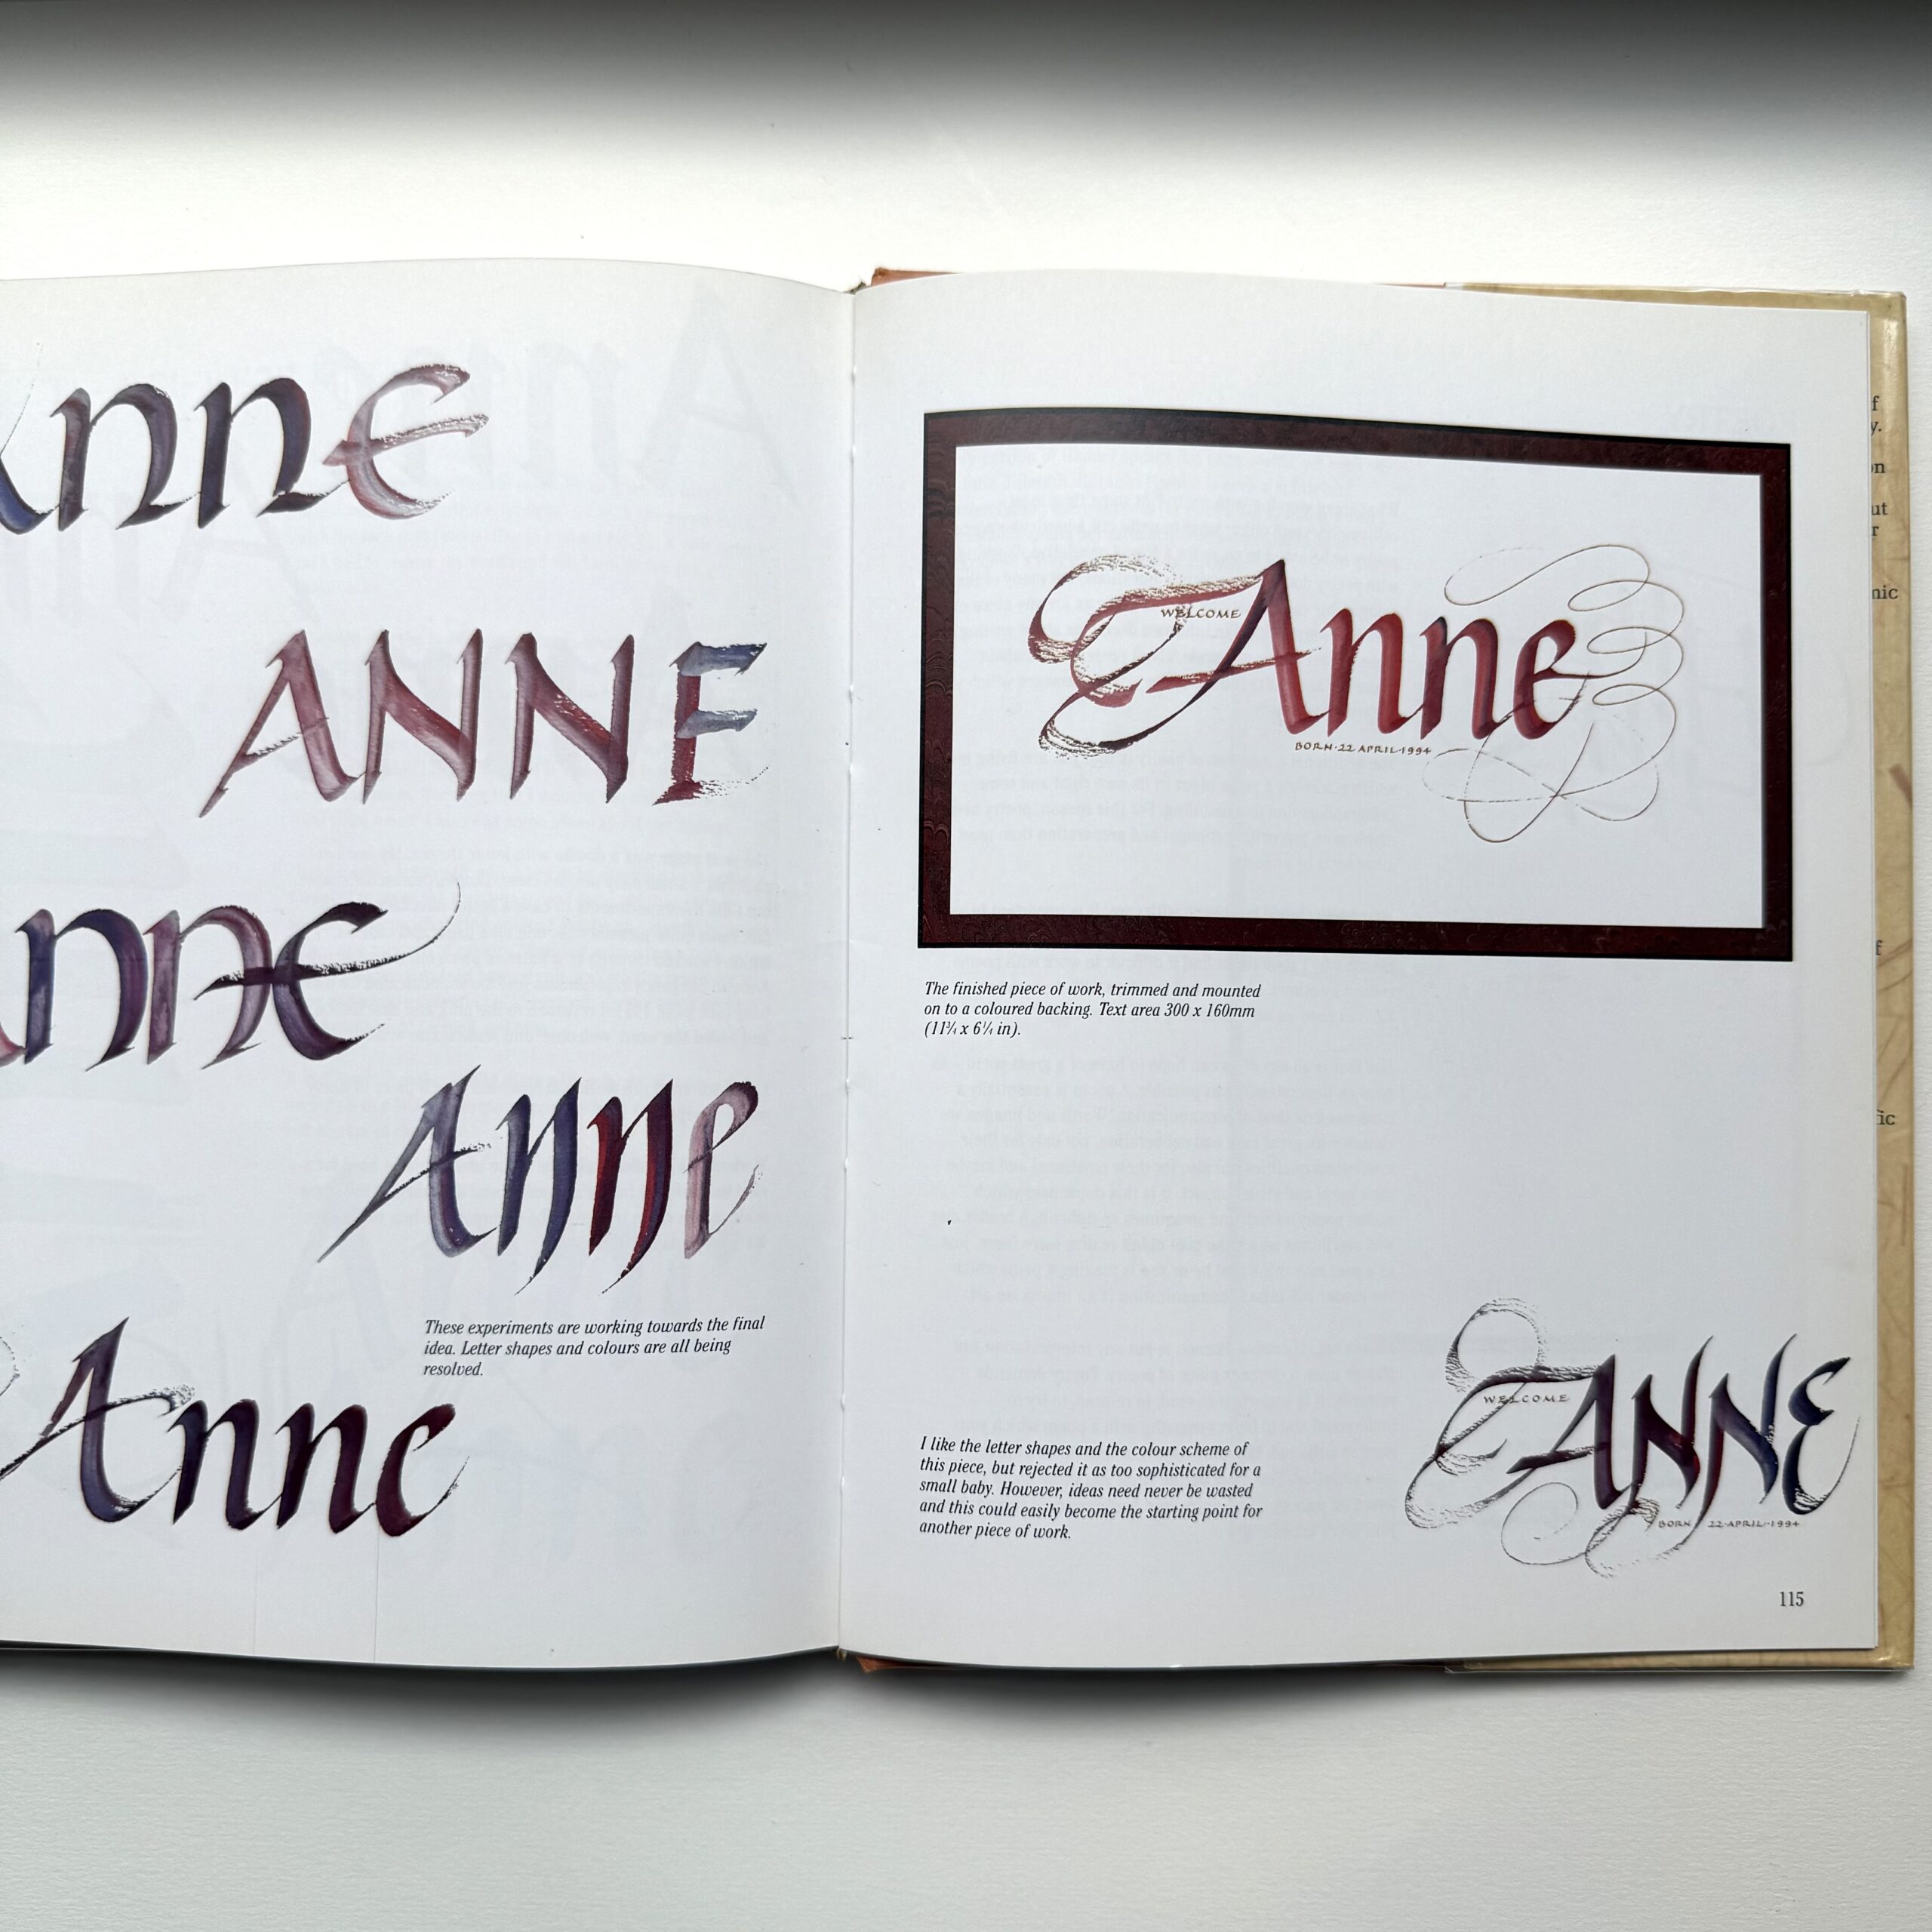 Anne
ANNE
Anne
Anne
These experiments are working towards the final
idea. Letter shapes and colours are all being
resolved.
Anne
WELCOME
Anne
BORN·22 APRIL·1994
The finished piece of work, trimmed and mounted
on to a coloured backing. Text area 300 x 160mm
(11¾ x 6¼ in).
I like the letter shapes and the colour scheme of
this piece, but rejected it as too sophisticated for a
small baby. However, ideas need never be wasted
and this could easily become the starting point for
another piece of work.
WELCOME
ANNE
BORN 22·APRIL·1994
115